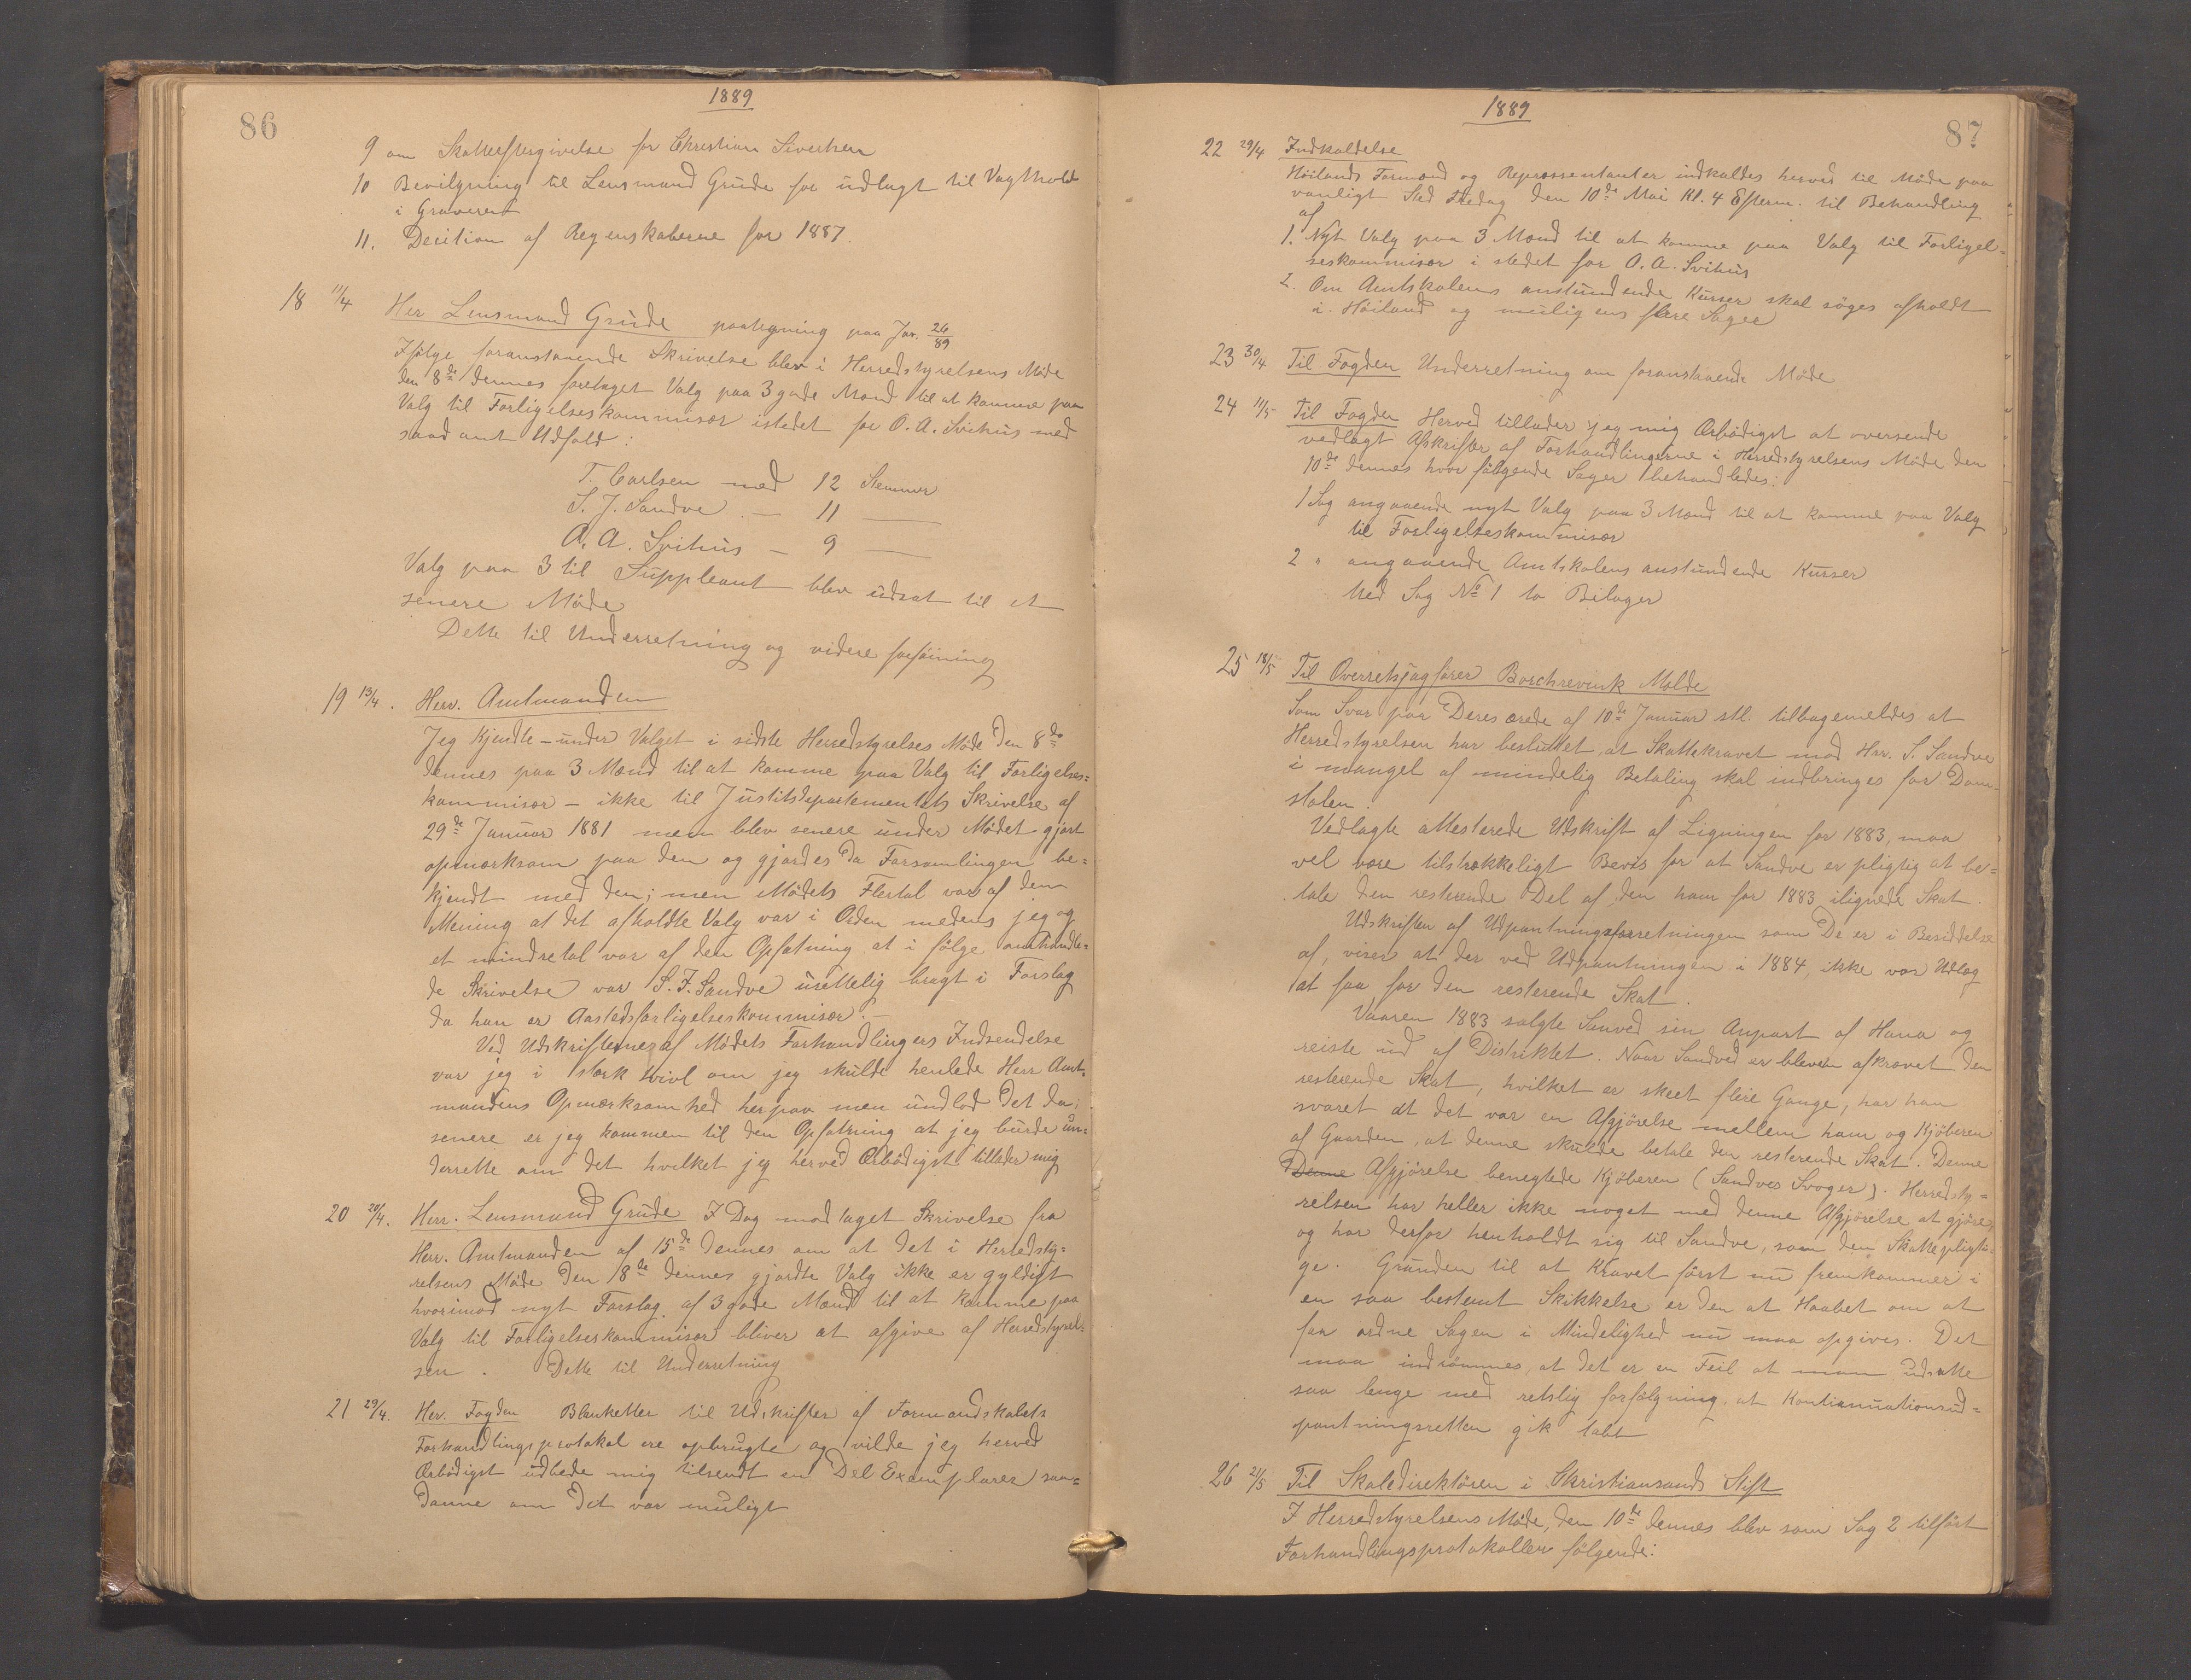 86
1889
9 om Skatteeftergivelse for Christian Sivertsen
10 Bevilgning til Lensmand Grude for udlagt til Vagthold
i Graveren
11. Decition af Regnskaberne for 1887.
18 11/4 Her Lensmand Grude paategning paa Jor. 26/89
Ifølge foranstaaende Skrivelse blev i Herredstyrelsens Møde
den 8de dennes foretaget Valg paa 3 gode Mænd til at komme paa
Valg til Forligelseskommisær istedet for O. A. Svihus med
saadant Udfald:
T. Carlsen med 12 Stemmer
S. J. Sandve — 11 —
A. A. Svihus — 9 —
Valg paa 3 til Suppleant blev udsat til et
senere Møde
Dette til Underretning og videre forføining
19 13/4. Herr. Amtmanden
Jeg kjendte – under Valget i sidste Herredstyrelses Møde den 8de
dennes paa 3 Mænd til at komme paa Valg til Forligelses=
kommisær – ikke til Justitsdepartementets Skrivelse af
29de Januar 1881 men blev senere under Mødet gjort
opmærksom paa den og gjordes da Forsamlingen be=
kjendt med den; men Mødets Flertal var af den
Mening at det afholdte Valg var i Orden medens jeg og
et mindretal var af den Opfatning at i følge omhandle=
de Skrivelse var S. J. Sandve urettelig bragt i Forslag
da han er Aastedsforligelseskommisær. –
Ved Udskrifternes af Mødets Forhandlingers Indsendelse
var jeg i stærk tvivl om jeg skulde henlede Herr Amt=
mandens Opmærksomhed herpaa men undlod det da;
senere er jeg kommen til den Opfatning at jeg burde un=
derrette om det hvilket jeg herved Ærbødigst tillader mig
20 20/4. Herr. Lensmand Grude I Dag modtaget Skrivelse fra
Herr. Amtmanden af 15de dennes om at det i Herredsty=
relsens Møde den 18de dennes gjordte Valg ikke er gyldigt
hvorimod nyt Forslag af 3 gode Mænd til at komme paa
Valg til Forligelseskommisær bliver at afgive af Herredstyrel=
sen. Dette til Underretning
21 29/4. Her. Fogden Blanketter til Udskrifter af Formandskabets
Forhandlingsprotokol ere opbrugte og vilde jeg herved
Ærbødigst udbede mig tilsendt en Del Exemplarer saa=
danne om det var muligt
1889
87
22 29/4 Indkaldelse
Høilands Formænd og Repræsentanter indkaldes herved til Møde paa
vanligt Sted Fredag den 10de Mai Kl. 4 Efterm. til Behandling
af
1. Nyt Valg paa 3 Mænd til at komme paa Valg til Forligel=
seskommisær i stedet for O. A. Svihus
2. Om Amtskolens anstundende Kurser skal søges afholdt
i Høiland og muligens flere Sager
23 30/4 Til Fogden Underretning om foranstaaende Møde
24 11/5 Til Fogden Herved tillader jeg mig Ærbødigst at oversende
vedlagt Afskrifter af Forhandlingerne i Herredstyrelsens Møde den
10de dennes hvor følgende Sager behandledes:
1 Sag angaaende nyt Valg paa 3 Mænd til at komme paa Valg
til Forligelseskommisær
2 " angaaende Amtskolens anstundende Kurser
Med Sag No 1 to Bilager
25 18/5 Til Overretsagfører Borchrevink Molde
Som Svar paa Deres ærede af 10de Januar stl. tilbagemeldes at
Herredstyrelsen har besluttet, at Skattekravet mod Hrr. S. Sandve
i mangel af mindelig Betaling skal indbringes for Dom=
stolen.
Vedlagte attesterede Udskrift af Ligningen for 1883, maa
vel være tilstrækkeligt Bevis for at Sandve er pligtig at be=
tale den resterende Del af den ham for 1883 ilignede Skat.
Udskriften af Udpantningsforretningen som De er i Besiddelse
af, viser at der ved Udpantningen i 1884, ikke var Udlæg
at faa for den resterende Skat.
Vaaren 1883 solgte Sanved sin Anpart af Hana og
reiste ud af Distriktet. Naar Sandved er bleven afkrævet den
resterende Skat, hvilket er skeet flere Gange, har han
svaret at det var en Afgjørelse mellem ham og Kjøberen
af Gaarden, at denne skulde betale den resterende Skat. Denne
Denne Afgjørelse benegtede Kjøberen (Sandves Svoger). Herredsty=
relsen har heller ikke noget med denne Afgjørelse at gjøre,
og har derfor henholdt sig til Sandve, som den Skattepligti=
ge. Grunden til at Kravet først nu fremkommer i
en saa bestemt Skikkelse er den at Haabet om at
faa ordne Sagen i Mindelighed nu maa opgives. Det
maa indrømmes, at det er en Feil at man udsatte
saa længe med retslig forfølgning, at Kontinuationsud=
pantningsretten gik tabt
26 21/5 Til Skoledirektøren i Christiansands Stift
I Herredstyrelsens Møde, den 10de dennes blev som Sag 2 tilført
Forhandlingsprotokollen følgende: